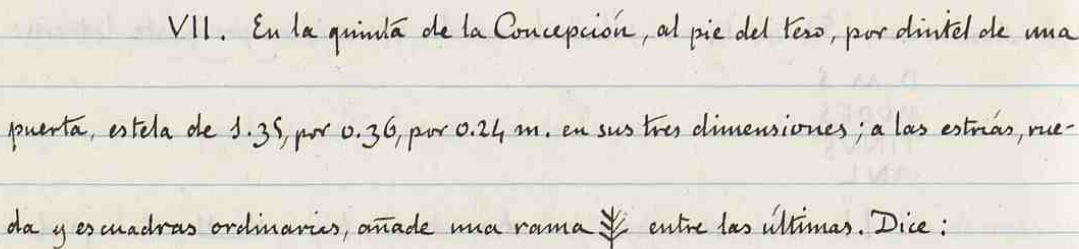 VII. En la quinta de la Concepción, al pie del teso, por dintel de una
puerta, estela de 1.35, por 0.36, por 0.24 m. en sus tres dimensiones; a las estrías, rue-
da y escuadras ordinarias, añade una rama entre las últimas. Dice: